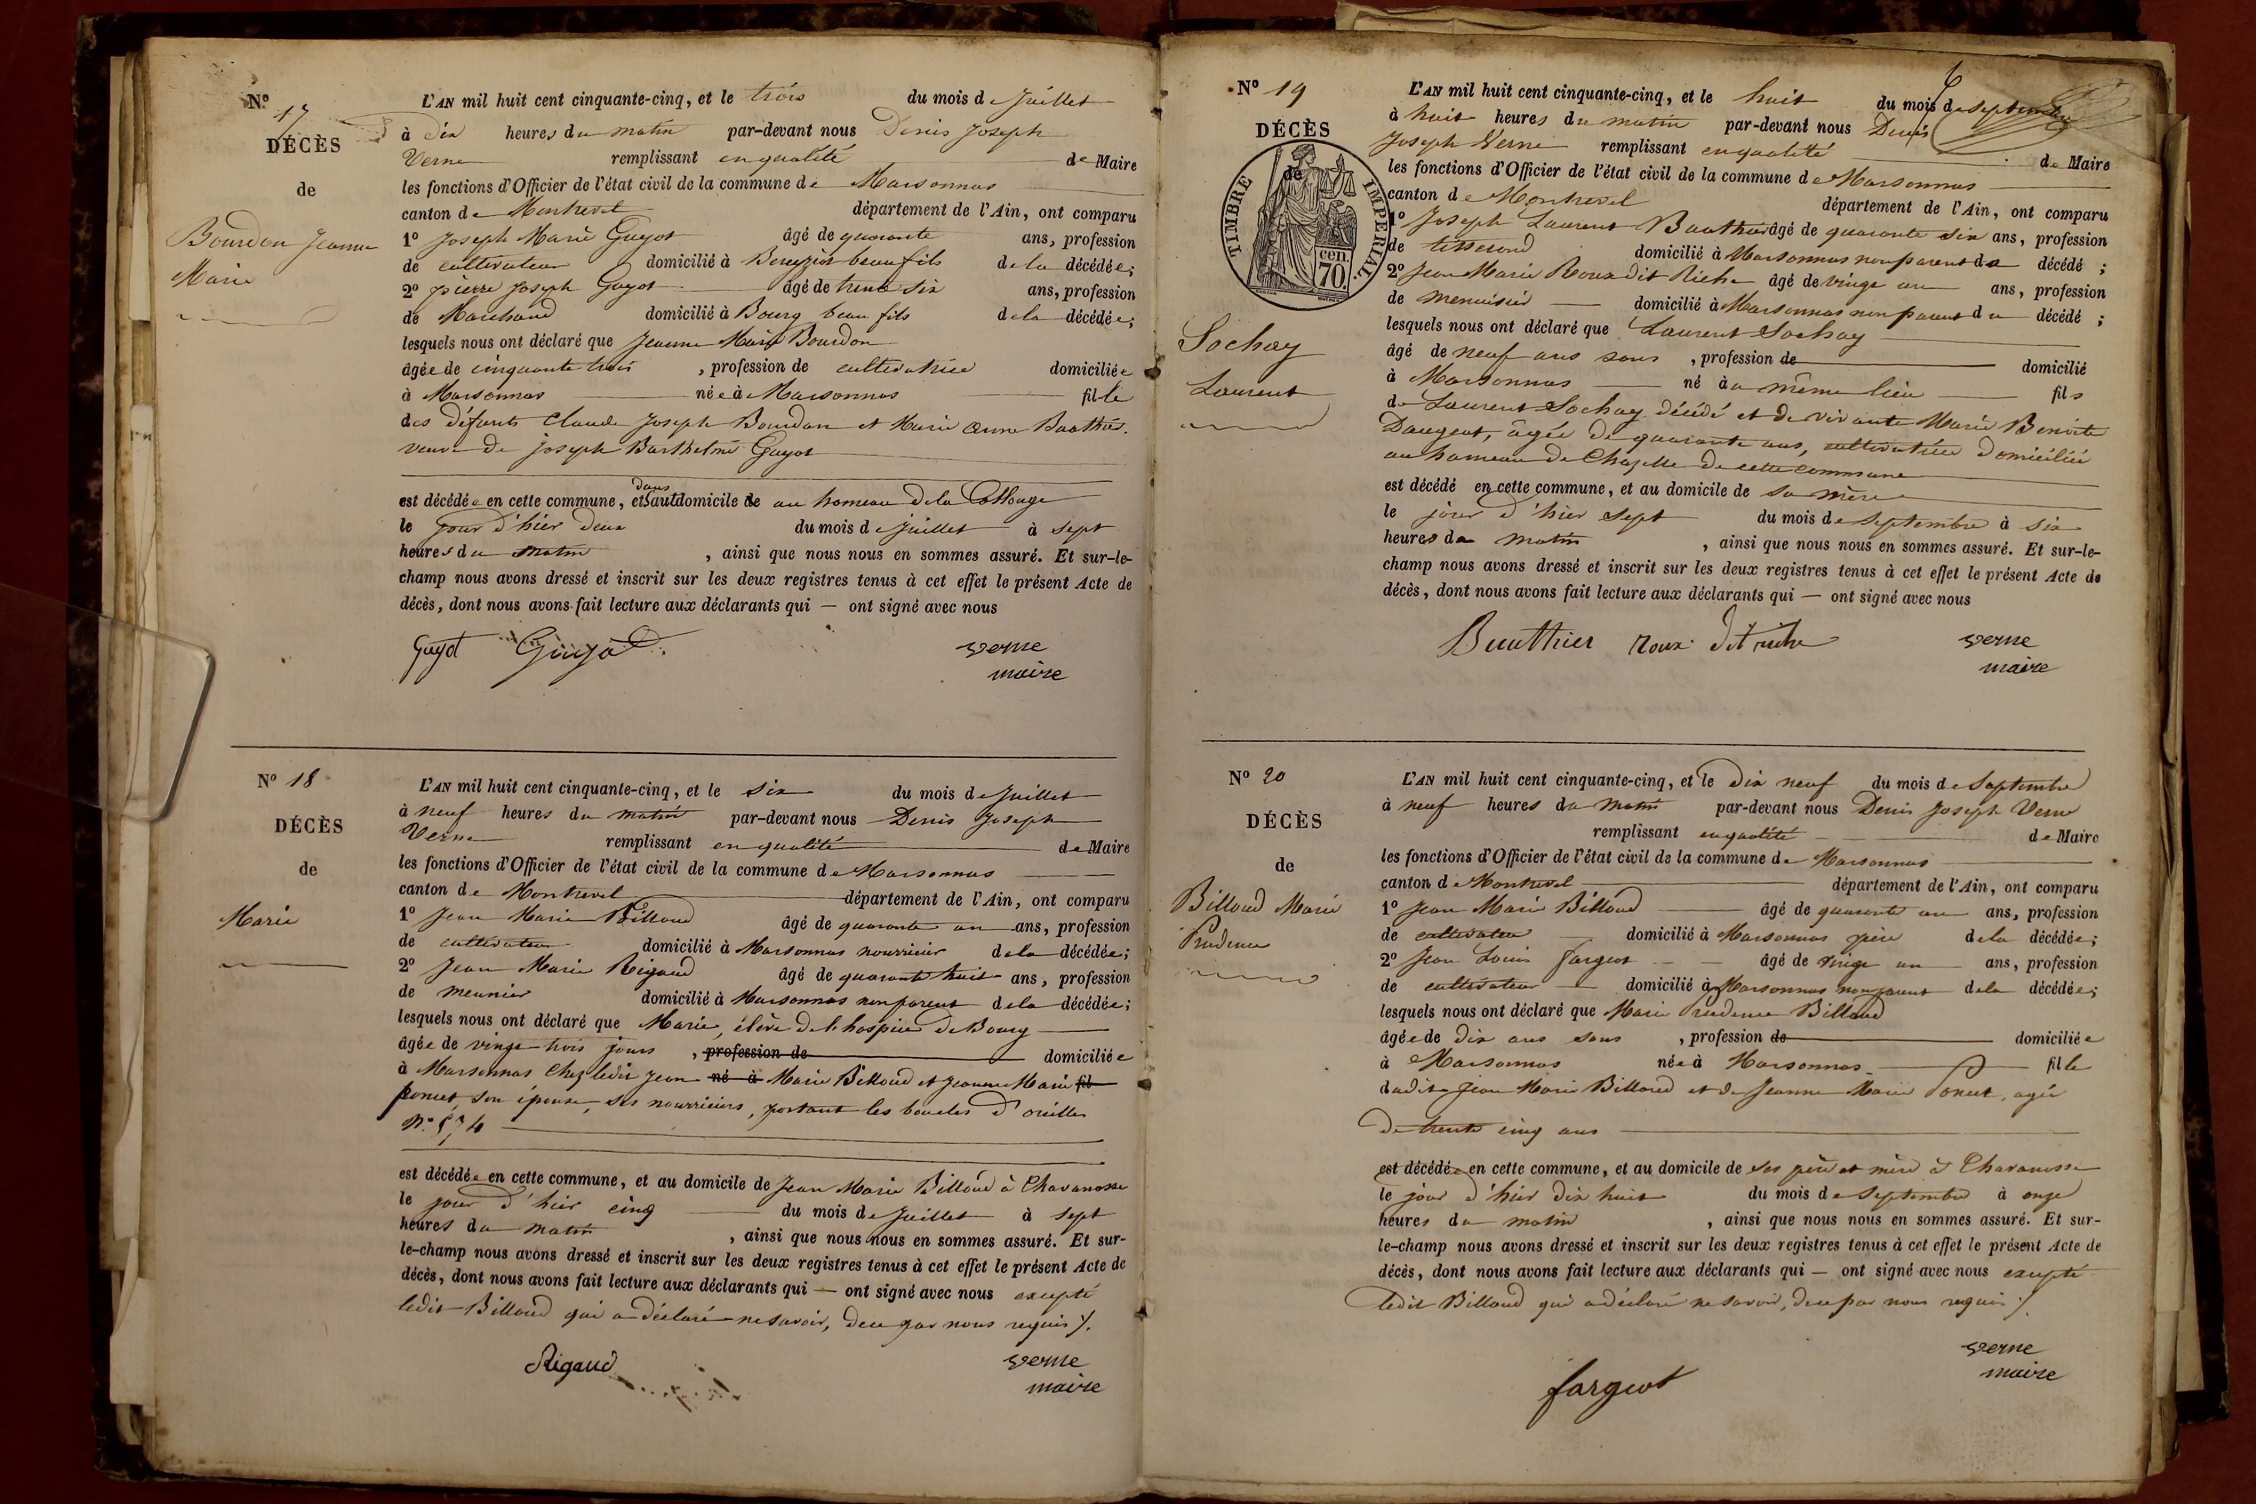 Nº 17
DÉCÈS
de
Bourdon Jeanne
Marie
L'AN mil huit cent cinquante-cinq, et le trois du mois de Juillet
à dix heures du matin par-devant nous Denis Joseph
Verne remplissant en qualité de Maire
les fonctions d'Officier de l'état civil de la commune de Marsonnas
canton de Montrevel département de l'Ain, ont comparu
1º Joseph Marie Guyot âgé de quarante ans, profession
de cultivateur domicilié à Bereyziat beau fils de la décédée;
2º pierre Joseph Guyot âgé de trente six ans, profession
de Marchand domicilié à Bourg beau fils de la décédée;
lesquels nous ont déclaré que Jeanne Marie Bourdon
âgée de cinquante trois , profession de cultivatrice domiciliée
à Marsonnas née à Marsonnas fille
des défunts Claude Joseph Bourdon et Marie Anne Baathier
veuve de joseph Barthelmé Guyot
est décédée en cette commune, et dans au domicile de au hameau de la
le jour d'hier deux du mois de Juillet à sept
heures du matin , ainsi que nous nous en sommes assuré. Et sur-le-
champ nous avons dressé et inscrit sur les deux registres tenus à cet effet le présent Acte de
décès, dont nous avons fait lecture aux déclarants qui — ont signé avec nous
Guyot Guyot verne
maire
Nº 18
DÉCÈS
de
Marie
L'AN mil huit cent cinquante-cinq, et le six du mois de Juillet
à neuf heures du matin par-devant nous Denis Joseph
Verne remplissant en qualité de Maire
les fonctions d'Officier de l'état civil de la commune de Marsonnas
canton de Montrevel département de l'Ain, ont comparu
1º Jean Marie Billoud âgé de quarante un ans, profession
de cultivateur domicilié à Marsonnas nourricier de la décédée;
2º Jean Marie Rigaud âgé de quarante huit ans, profession
de meunier domicilié à Marsonnas non parent de la décédée;
lesquels nous ont déclaré que Marie, élève de l'hospice de Bourg
âgée de vingt trois jours , profession de domiciliée
à Marsonnas chez ledit Jean né à Marie Billoud et Jeanne Marie fil
poncet, son épouse, ses nourriciers, portant les boucles d'oreilles
Nº
est décédée en cette commune, et au domicile de Jean Marie Billoud à Chavanosse
le jour d'hier cinq du mois de Juillet à sept
heures du matin , ainsi que nous nous en sommes assuré. Et sur-
le-champ nous avons dressé et inscrit sur les deux registres tenus à cet effet le présent Acte de
décès, dont nous avons fait lecture aux déclarants qui — ont signé avec nous excepté
ledit Billoud qui a déclaré ne savoir, de ce par nous requis /.
Rigaud verne
maire
Nº 19
DÉCÈS
de
TIMBRE IMPÉRIAL.
cen.
70.
Sochay
Laurent
6
L'AN mil huit cent cinquante-cinq, et le huit du mois de septembre
à huit heures du matin par-devant nous Denis
Joseph Verne remplissant en qualité de Maire
les fonctions d'Officier de l'état civil de la commune de Marsonnas
canton de Montrevel département de l'Ain, ont comparu
1º Joseph Laurent Buathier âgé de quarante six ans, profession
de tisserand domicilié à Marsonnas non parent du décédé ;
2º Jean Marie Roux dit Riche âgé de vingt un ans, profession
de menuisier domicilié à Marsonnas non parent du décédé ;
lesquels nous ont déclaré que Laurent Sochay
âgé de neuf ans sans , profession de domicilié
à Marsonnas né au même lieu fils
de Laurent Sochay décédé et de vivante Marie Benoite
Daugeat, âgée de quarante ans, cultivatrice domiciliée
au hameau de Chapelle de cette commune
est décédé en cette commune, et au domicile de sa mère
le jour d'hier sept du mois de septembre à six
heures du matin , ainsi que nous nous en sommes assuré. Et sur-le-
champ nous avons dressé et inscrit sur les deux registres tenus à cet effet le présent Acte de
décès, dont nous avons fait lecture aux déclarants qui — ont signé avec nous
Buathier roux dit riche verne
maire
Nº 20
DÉCÈS
de
Billoud Marie
Prudence
L'AN mil huit cent cinquante-cinq, et le dix neuf du mois de Septembre
à neuf heures du matin par-devant nous Denis Joseph Verne
remplissant en qualité de Maire
les fonctions d'Officier de l'état civil de la commune de Marsonnas
canton de Montrevel département de l'Ain, ont comparu
1º Jean Marie Billoud âgé de quarante un ans, profession
de cultivateur domicilié à Marsonnas père de la décédée;
2º Jean Louis fargeot âgé de vingt un ans, profession
de cultivateur domicilié à Marsonnas non parent de la décédée;
lesquels nous ont déclaré que Marie Prudence Billoud
âgée de dix ans sans , profession de domiciliée
à Marsonnas née à Marsonnas fille
dudit Jean Marie Billoud et de Jeanne Marie Poncet, agée
de trente cinq ans
est décédée en cette commune, et au domicile de ses père et mère à Chavanosse
le jour d'hier dix huit du mois de septembre à onze
heures du matin , ainsi que nous nous en sommes assuré. Et sur-
le-champ nous avons dressé et inscrit sur les deux registres tenus à cet effet le présent Acte de
décès, dont nous avons fait lecture aux déclarants qui — ont signé avec nous excepté
ledit Billoud qui a déclaré ne savoir, de ce par nous requis /.
verne
fargeot maire